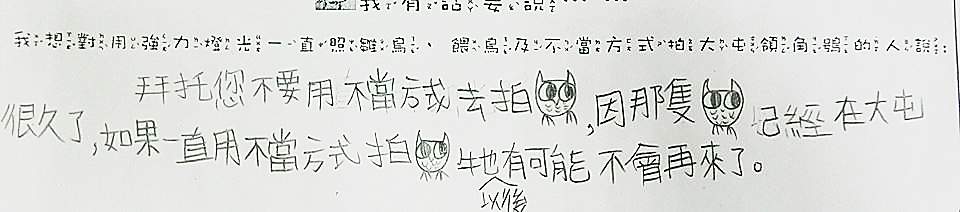 我有話要說……
我想對用強力燈光一直照雛鳥、餵鳥及不當方式拍大屯領角鴞的人說:
拜托您不要用不當方式去拍,因那隻已經在大屯
很久了,如果一直用不當方式拍牠有可能不會再來了。
以後